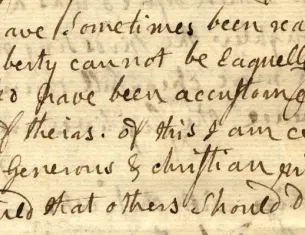 ave Sometimes been rea
berty cannot be Eaquell
have been accustom
of theirs. of this I am c
Generous & christian
that others Should d